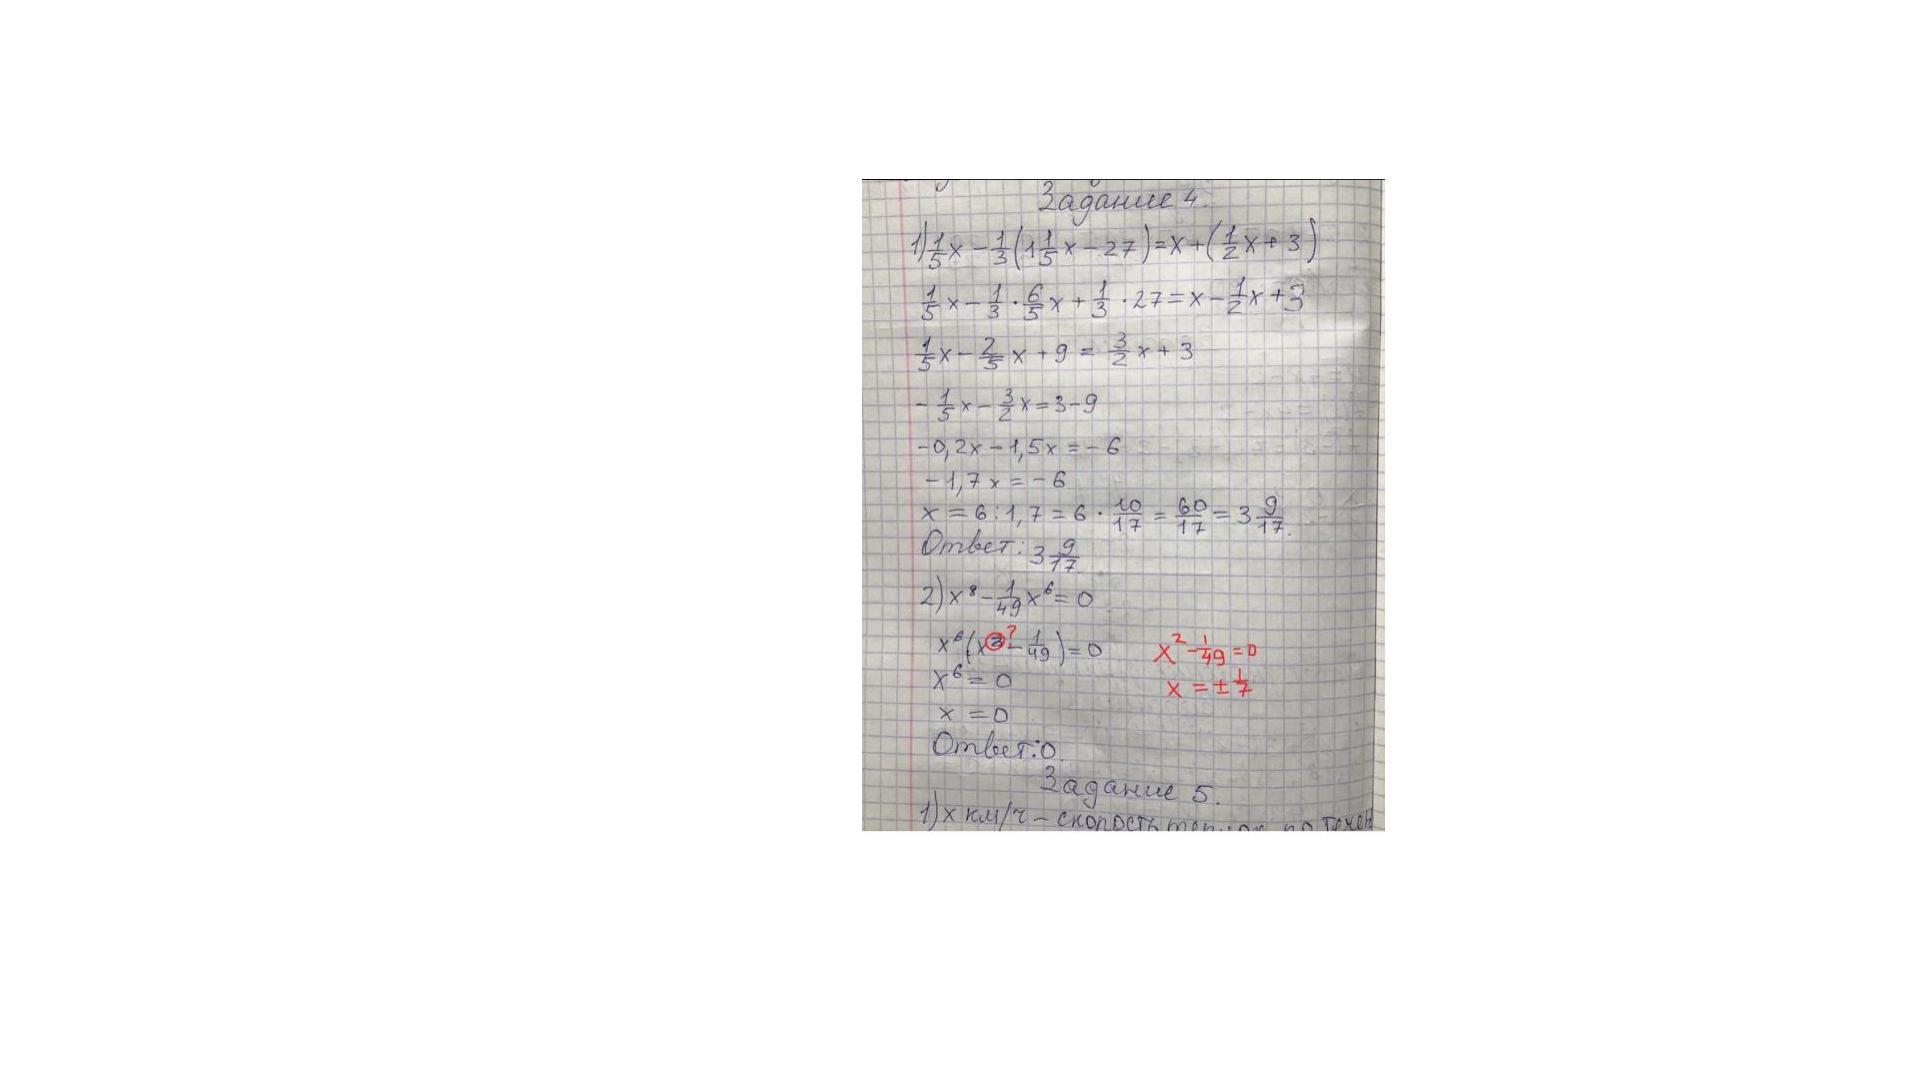 Задание 4.
1) 1/5 x - 1/3 (1 1/5 x - 27) = x + (1/2 x + 3)
1/5 x - 1/3 · 6/5 x + 1/3 · 27 = x - 1/2 x + 3
1/5 x - 2/5 x + 9 = 3/2 x + 3
- 1/5 x - 3/2 x = 3 - 9
-0,2x - 1,5x = -6
-1,7x = -6
x = 6 : 1,7 = 6 · 10/17 = 60/17 = 3 9/17.
Ответ: 3 9/17
2) x⁸ - 1/49 x⁶ = 0
?
x⁶(x - 1/49) = 0
x² - 1/49 = 0
x⁶ = 0
x = ± 1/7
x = 0
Ответ: 0.
Задание 5.
1) x км/ч - скорость по течен